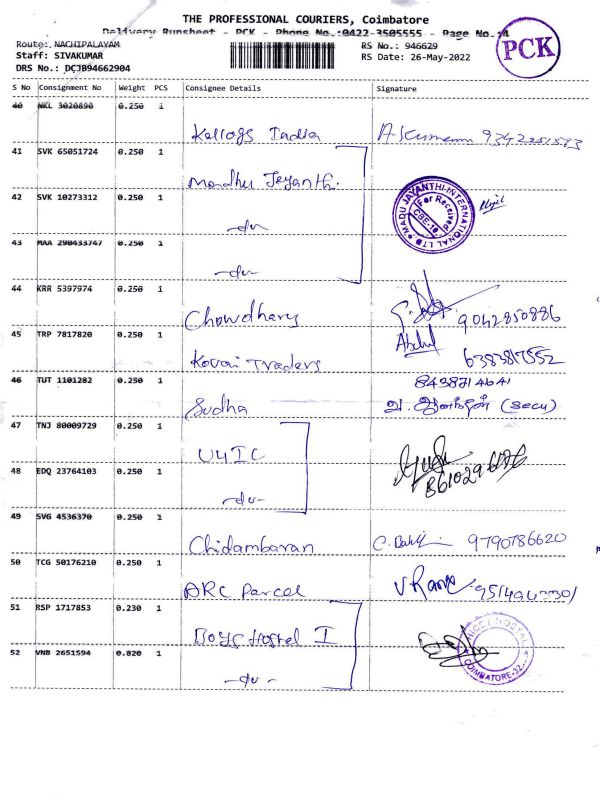 THE PROFESSIONAL COURIERS, Coimbatore
Delivery Runsheet - PCK - Phone No.:0422-3505555 - Page No.:4
Route: NACHIPALAYAM
Staff: SIVAKUMAR
DRS No.: DCJB94662904
RS No.: 946629
RS Date: 26-May-2022
PCK
S No Consignment No Weight PCS Consignee Details Signature
40 NKL 3020890 0.250 1
Kellogs India 9342251543
41 SVK 65051724 0.250 1
Madhu Jeyanthi.
42 SVK 10273312 0.250 1
-do-
MADU JAYANTHI INTERNATIONAL LTD
For Received
CBE-18
43 MAA 290433747 0.250 1
-do-
44 KRR 5397974 0.250 1
Chowdhary 9042850886
45 TRP 7817820 0.250 1
Kovai Traders Abdul 6383817552
46 TUT 1101282 0.250 1
8438714641
Sudha (Secu)
47 TNJ 80009729 0.250 1
48 EDQ 23764103 0.250 1
-do-
49 SVG 4536370 0.250 1
Chidambaran 9790786620
50 TCG 50176210 0.250 1
ARC Parcel
51 RSP 1717853 0.230 1
Boys Hostel I
52 VNB 2651594 0.820 1
-do-
HOSTEL
COIMBATORE-32